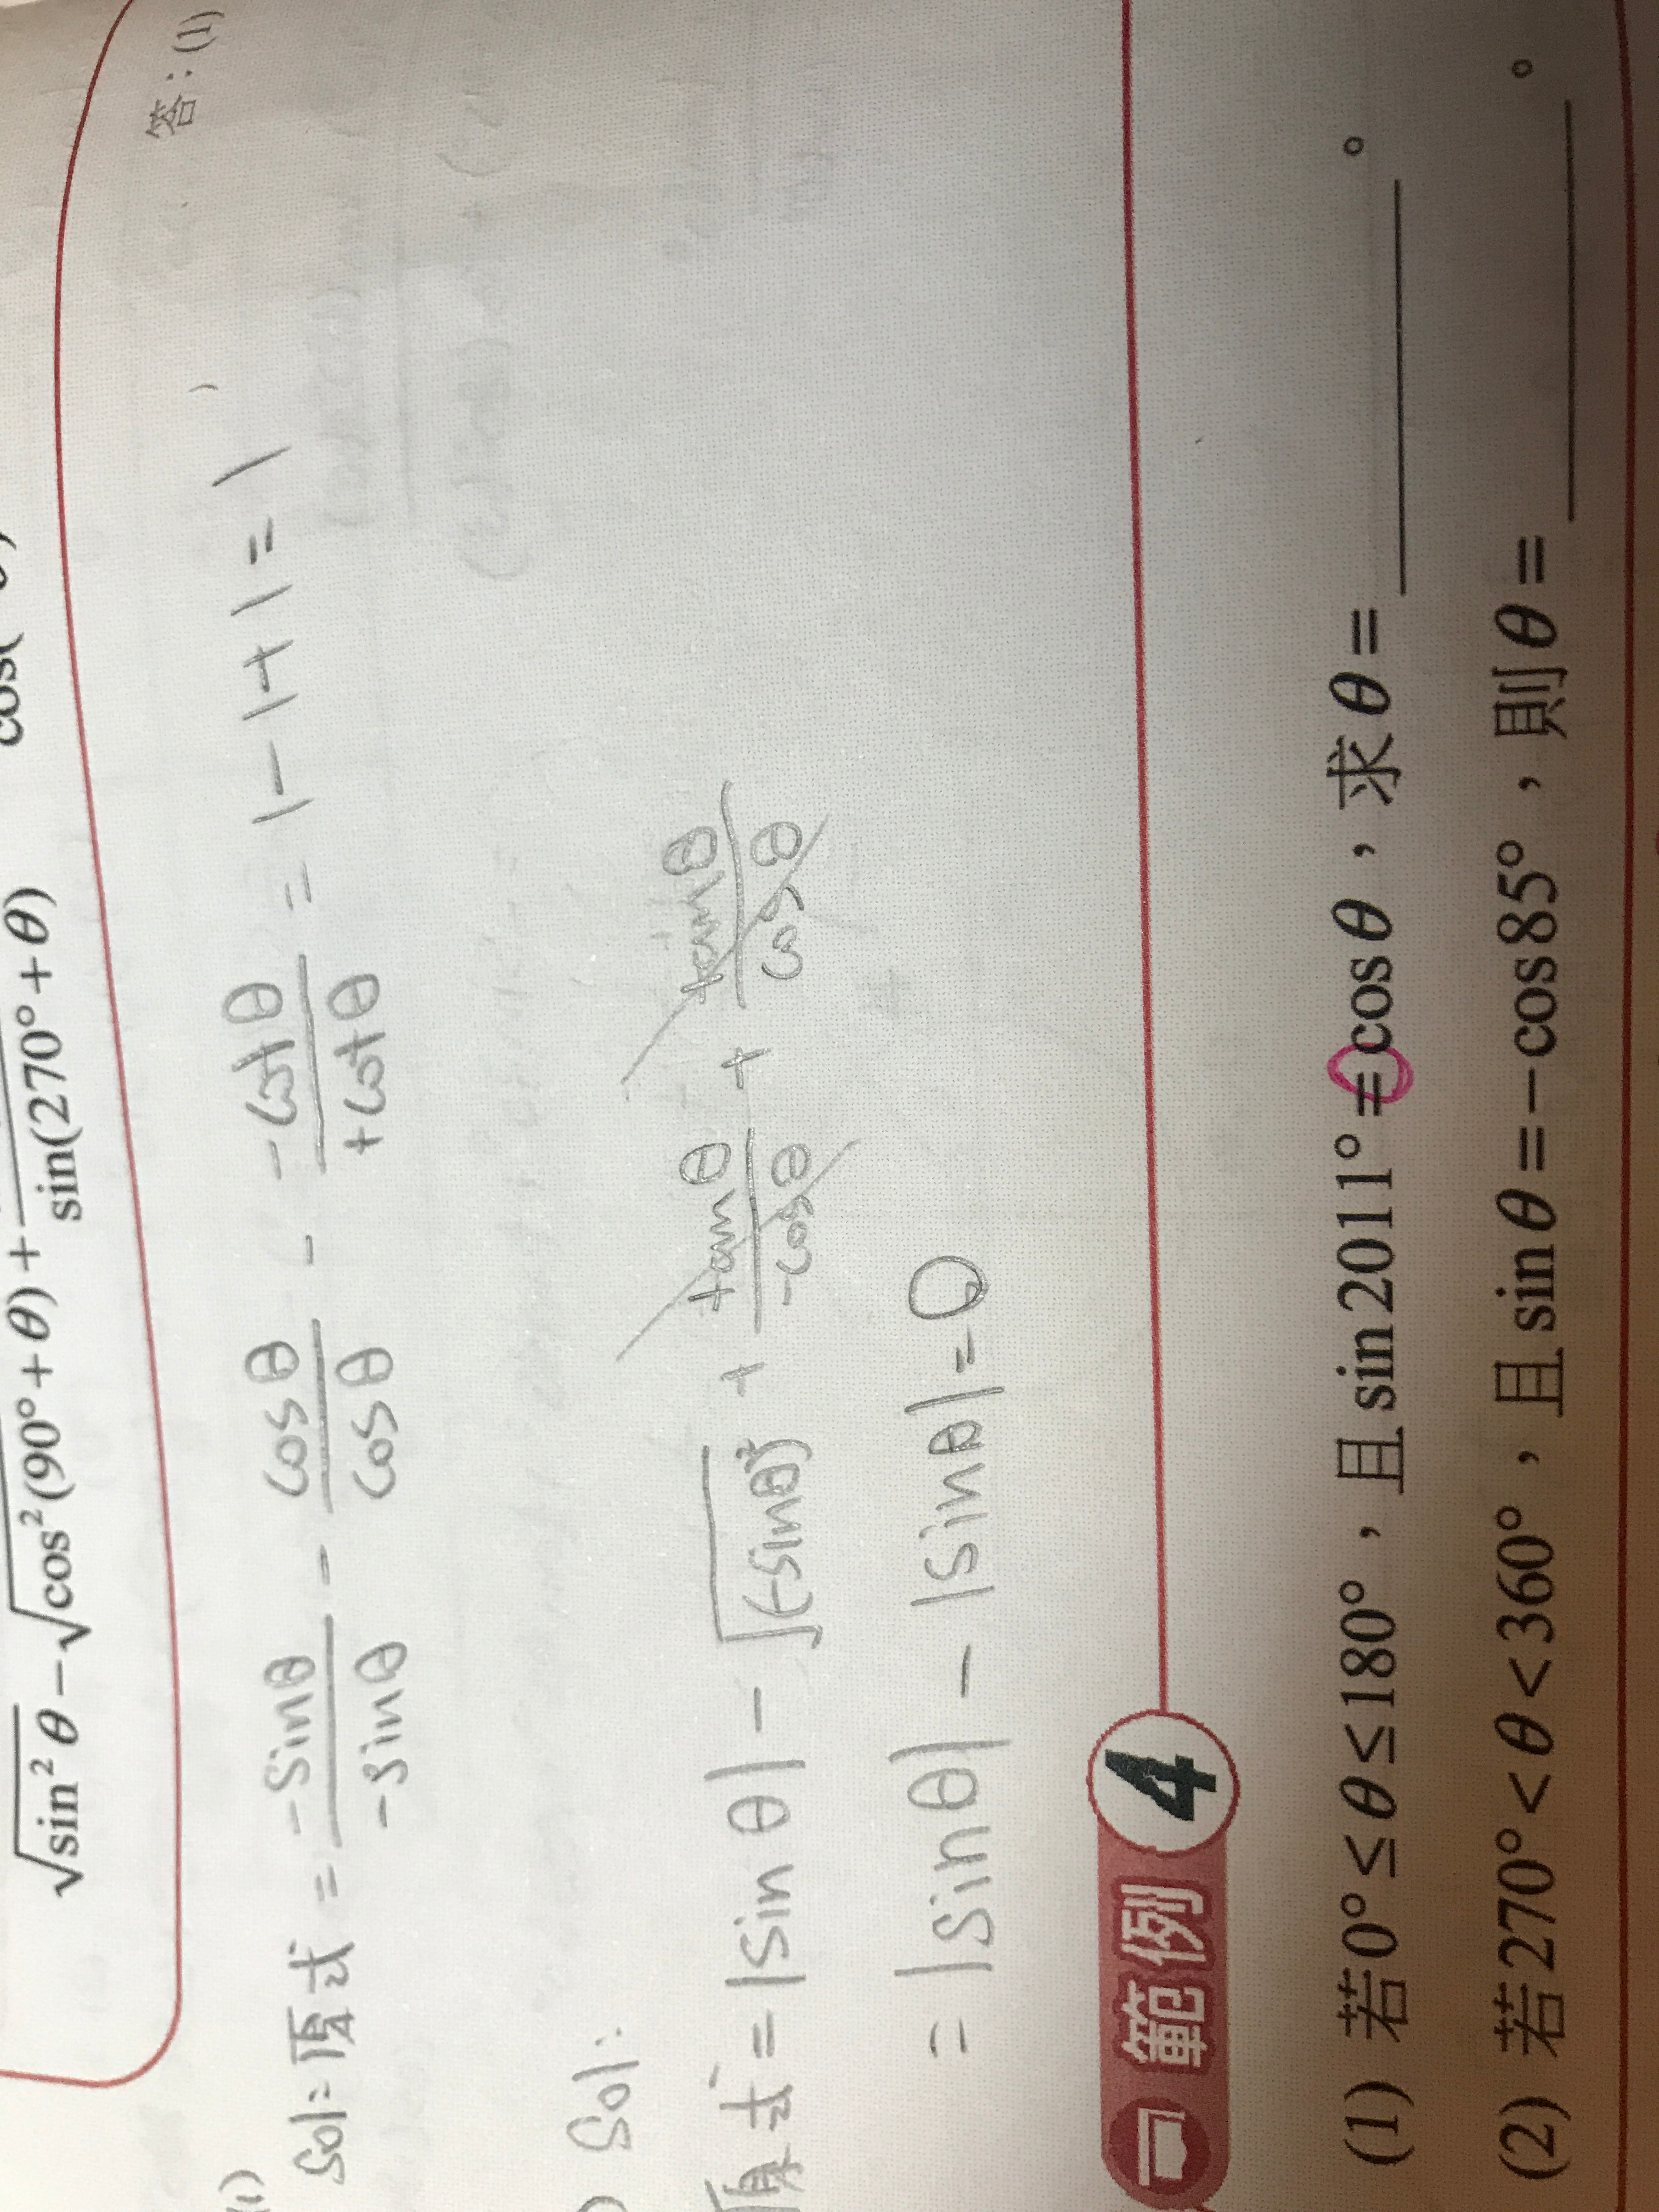 cos(
√sin²θ − √cos²(90°+θ) + sin(270°+θ)
答:(1)
(1)
Sol: 原式 = -sinθ/-sinθ - cosθ/cosθ - -cotθ/+cotθ = 1-1+1=1
Sol:
原式 = |sinθ| - √(-sinθ)² + tanθ/-cosθ + tanθ/cosθ
= |sinθ| - |sinθ| = 0
範例 4
(1) 若0°≤θ≤180°,且sin2011°=cosθ,求θ=________。
(2) 若270°<θ<360°,且sinθ=−cos85°,則θ=________。